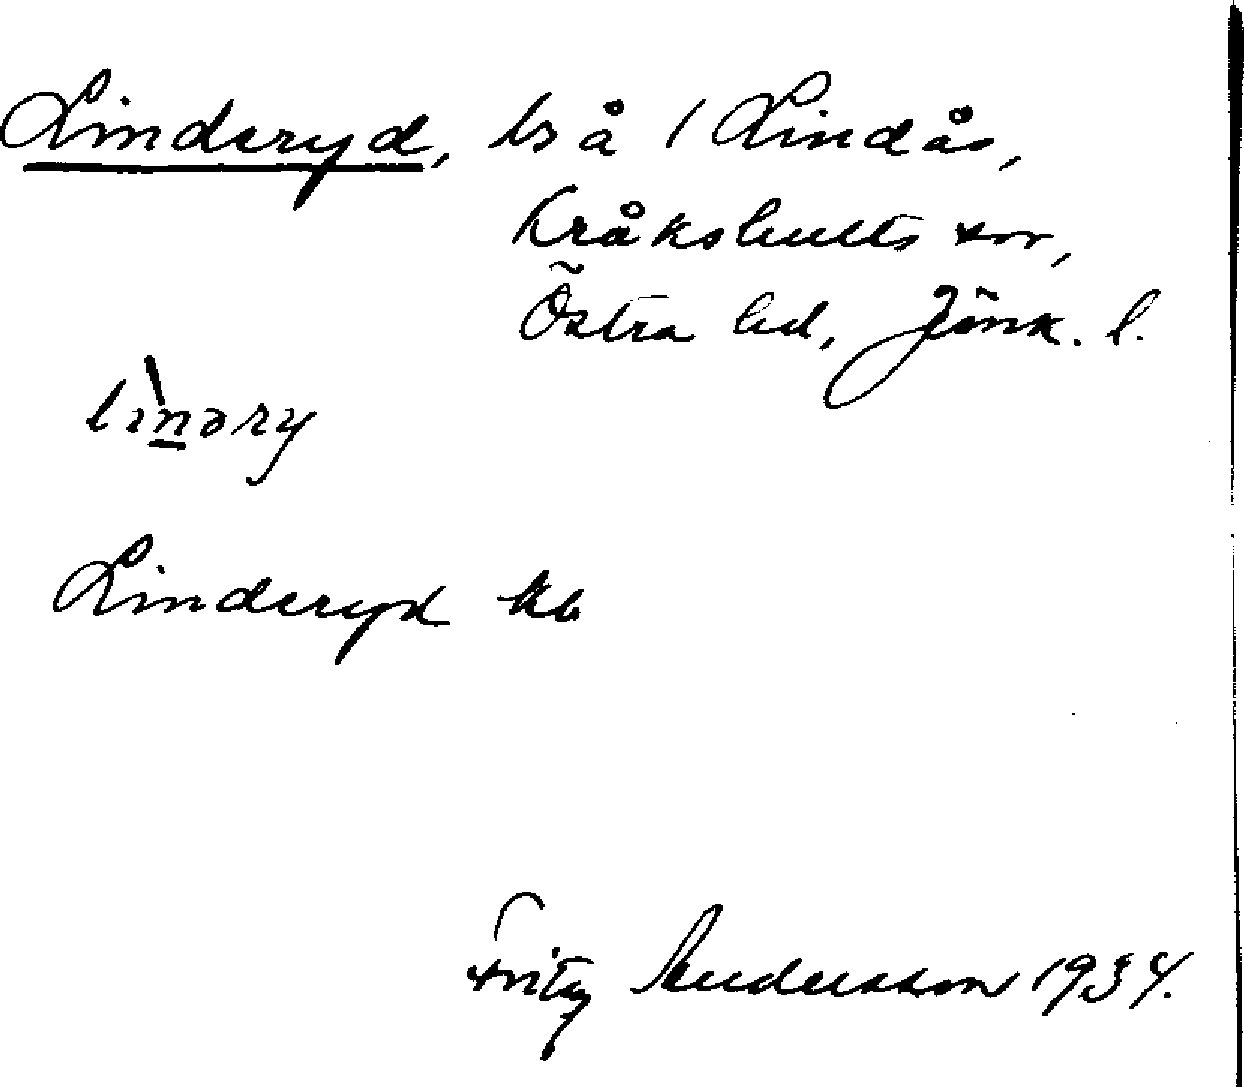 Linderyd, ts å 1 Lindås,
Kråkshults sn,
Östra hd, Jönk. l.
lìnəry
Linderyd kb
Fritz Andersson 1934.